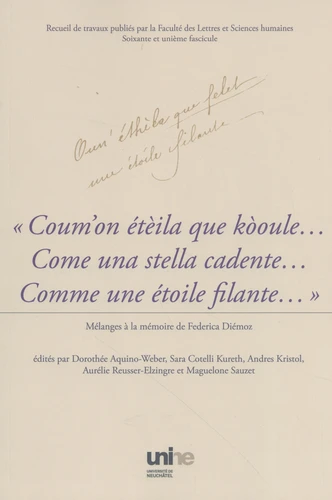 Recueil de travaux publiés par la Faculté des Lettres et Sciences humaines
Soixante et unième fascicule
Oun' éthèla que
une étoile filante
« Coum'on étèila que kòoule…
Come una stella cadente…
Comme une étoile filante… »
Mélanges à la mémoire de Federica Diémoz
édités par Dorothée Aquino-Weber, Sara Cotelli Kureth, Andres Kristol,
Aurélie Reusser-Elzingre et Maguelone Sauzet
unine
UNIVERSITÉ DE
NEUCHÂTEL